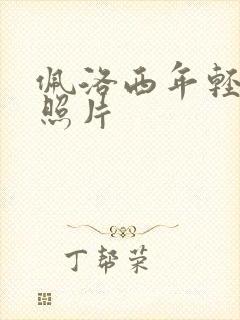 佩洛西年轻
照片
丁帮荣